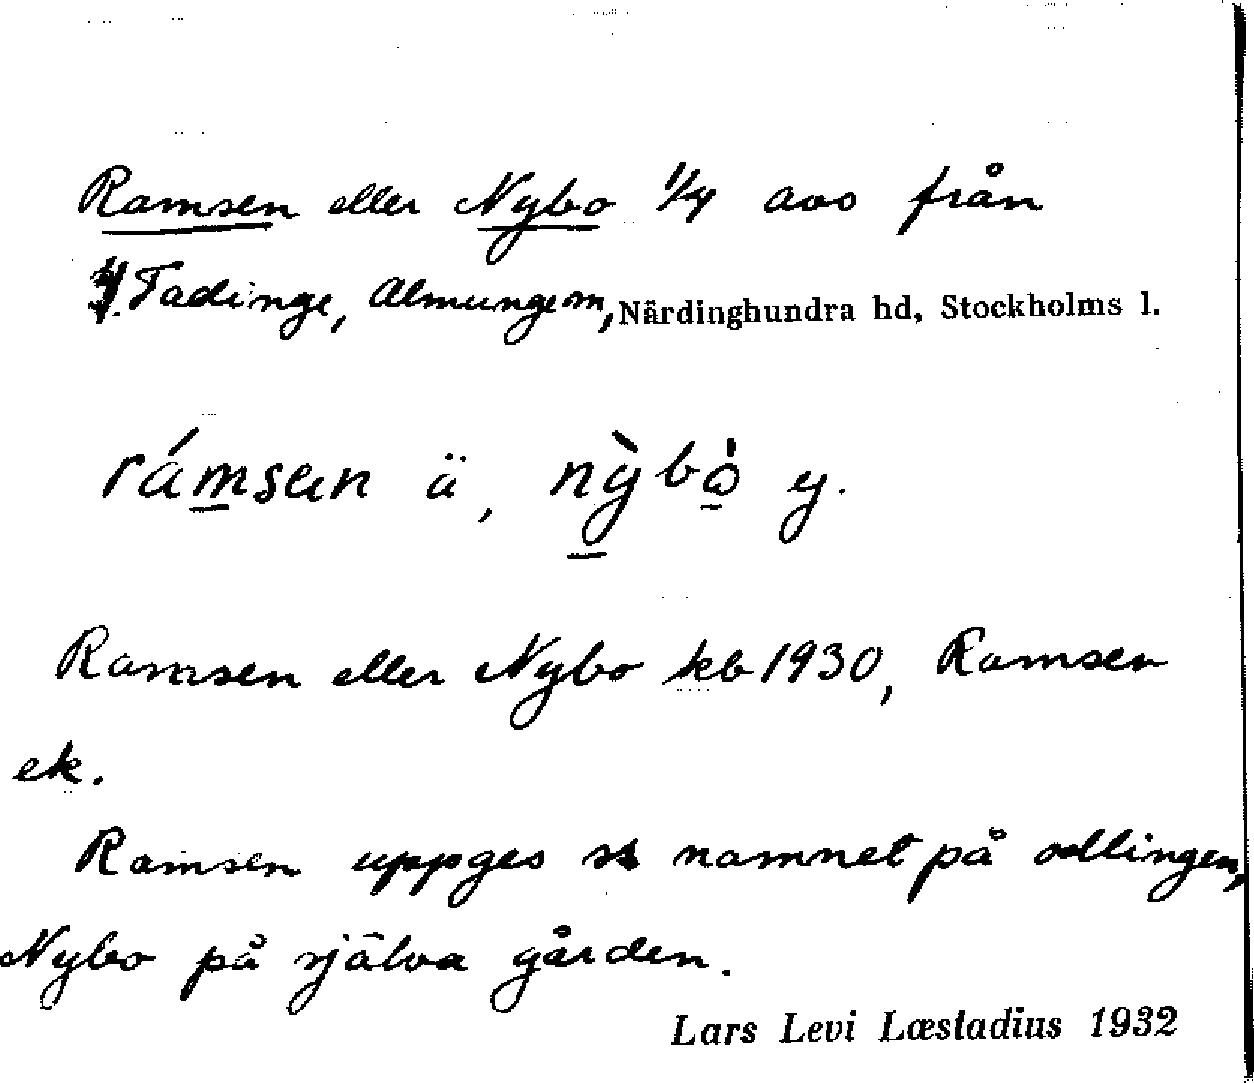 Ramsen eller Nybo 1/4 avs från
Tadinge, Almunge sn, Närdinghundra hd, Stockholms l.
rámsen ä, nỳbò y.
Ramsen eller Nybo kb 1930, Ramsen
ek.
Ramsen uppges namnet på odlingen,
Nybo på själva gården.
Lars Levi Læstadius 1932